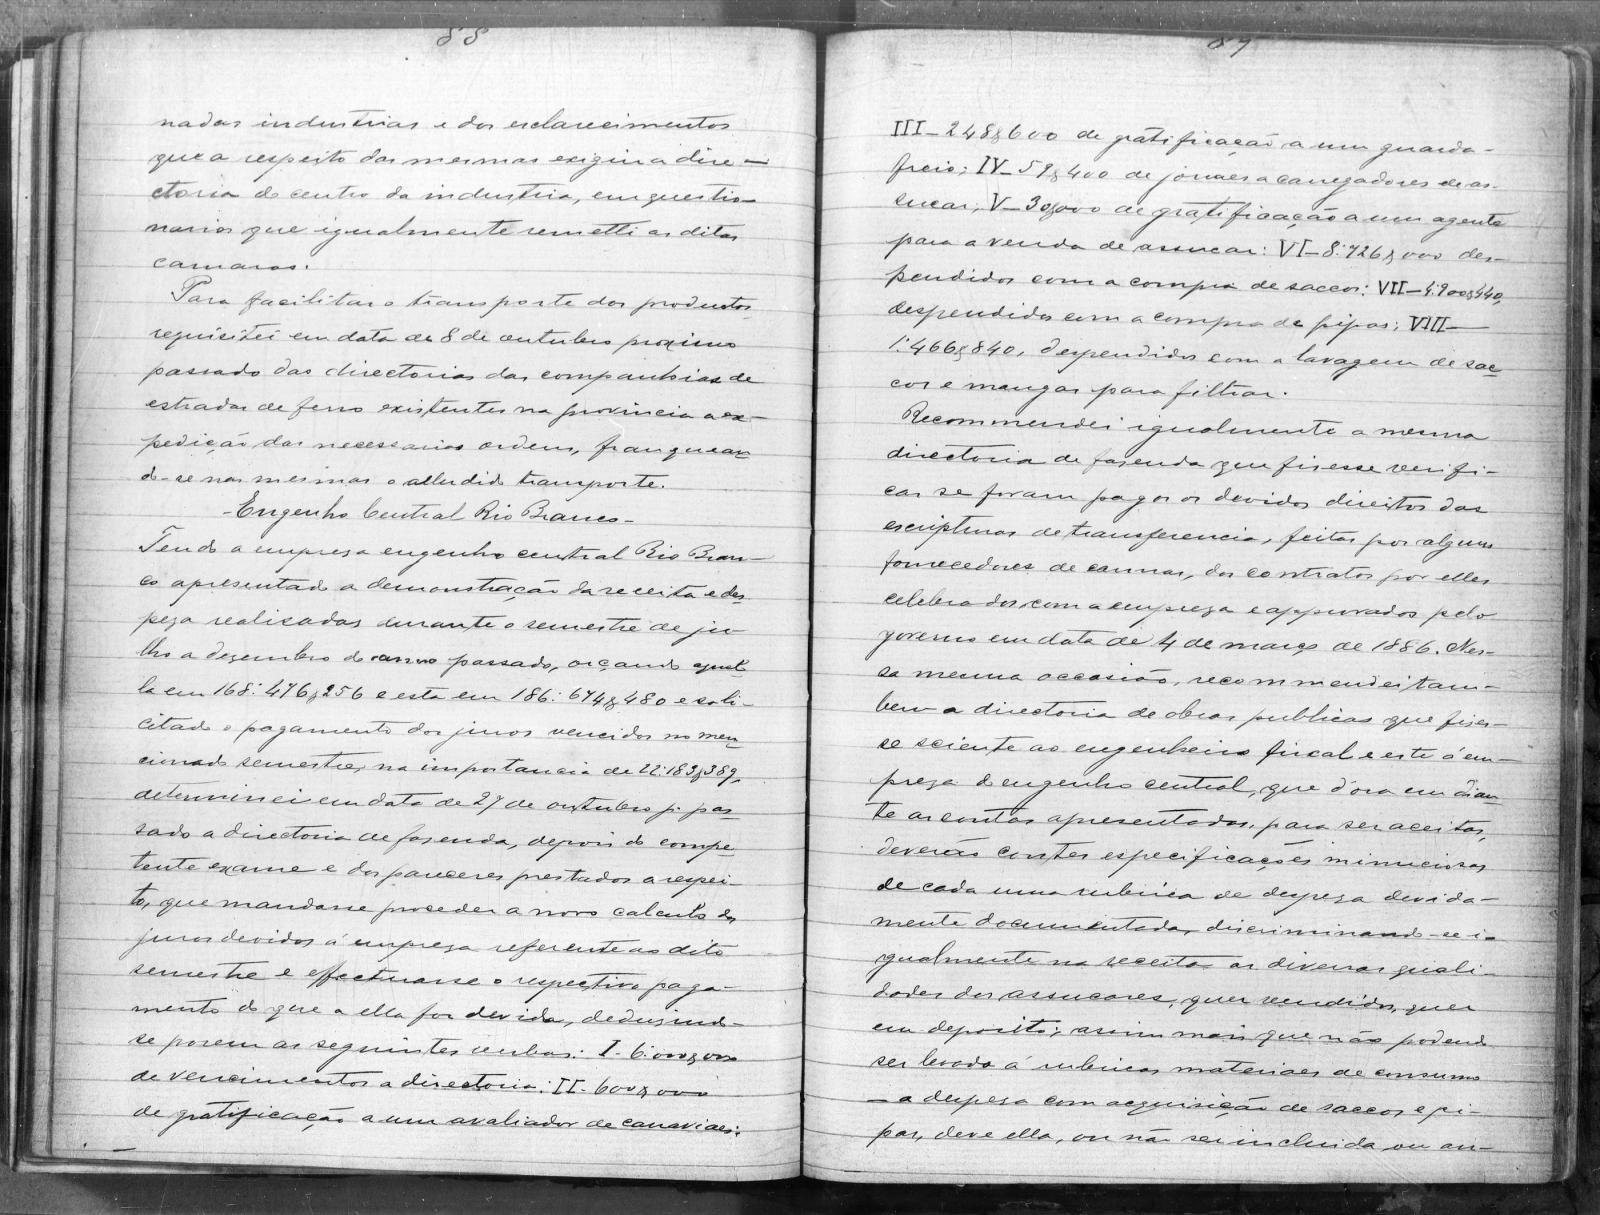 88
nadas industrias e dos esclarecimentos
que a respeito das mesmas exigia a dire-
ctoria do centro da industria, em questio-
narios que igualmente remetti as ditas
camaras.
Para facilitar o transporte dos productos
requisitei em data de 8 de outubro proximo
passado das directorias das companhias de
estradas de ferro existentes na provincia a ex-
pedição das necessarias ordens, franquean
do-se nas mesmas o alludido transporte.
-Engenho Central Rio Branco-
Tendo a empresa engenho central Rio Bran-
co apresentado a demonstração da receita e des
peza realisadas durante o semestre de ju
lho a dezembro do anno passado, orçando aquel
la em 168:476$256 e esta em 186:674$480 e soli-
citado o pagamento dos juros vencidos no men
cionado semestre, na importancia de 22:183$389,
determinei em data de 27 de outubro p. pas
sado a directoria de fazenda, depois do compe
tente exame e dos pareceres prestados a respei-
to, que mandasse proceder a novo calculo dos
juros devidos á empreza referente ao dito
semestre e effectuasse o respectivo paga-
mento do que a ella for devido, deduzindo-
se porem as seguintes verbas: I-6:000$000
de vencimentos a directoria: II-600$000
de gratificação a um avaliador de canaviaes;
89
III-248$600 de gratificação a um guarda-
freio; IV-59$400 de jornaes a carregadores de as-
sucar; V-30$000 de gratificação a um agente
para a venda de assucar: VI-8:726$000 des-
pendidos com a compra de saccos: VII-4:900$440,
despendidos com a compra de pipas; VIII-
1:466$840, despendidos com a lavagem de sac
cos e mangas para filtrar.
Recommendei igualmente a mesma
directoria de fazenda que fizesse verifi-
car se foram pagos os devidos direitos das
escripturas de transferencia, feitas por alguns
fornecedores de cannas, dos contratos por elles
celebrados com a empreza e approvados pelo
governo em data de 4 de março de 1886. Nes-
sa mesma occasião, recommendei tam-
bem a directoria de obras publicas que fizes-
se sciente ao engenheiro fiscal e este á em-
preza do engenho central, que d'ora em dian
te as contas apresentadas, para ser aceitas,
deverão conter especificações minuciosas
de cada uma rubrica de despeza devida-
mente documentada, discriminando-se i-
gualmente na receita as diversas quali-
dades dos assucares, quer vendidos, quer
em deposito; assim mais que não podendo
ser levada á rubricas materiaes de consumo
- a despeza com acquisição de saccos e pi-
pas, deve ella, ou não ser incluida, ou an-